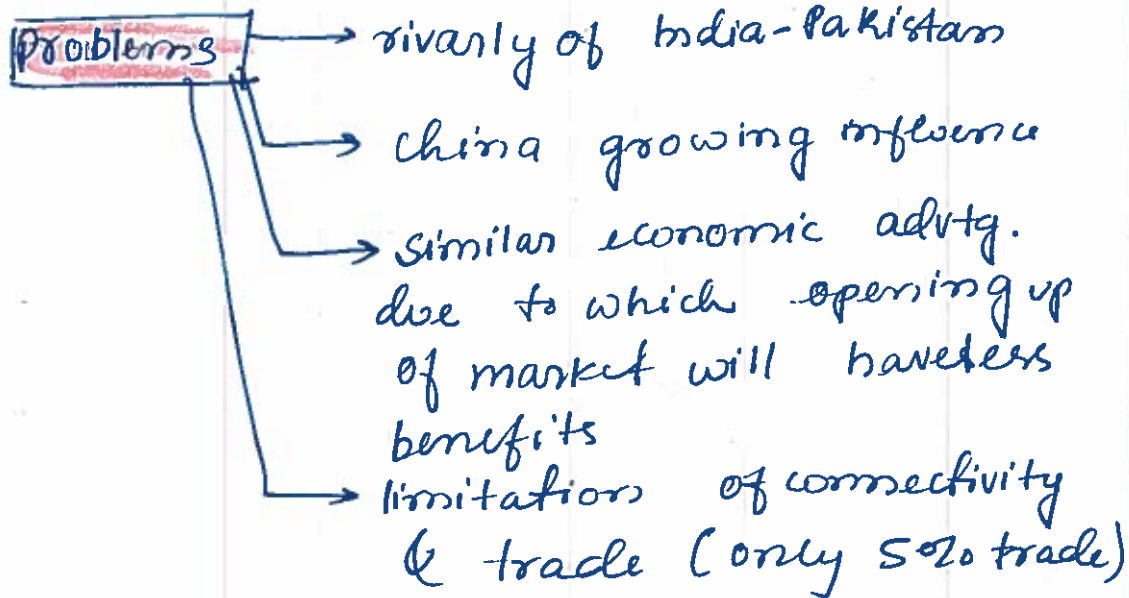 Problems
rivarly of India-Pakistan
China growing influence
similar economic advtg.
due to which opening up
of market will have less
benefits
limitation of connectivity
& trade (only 5% trade)